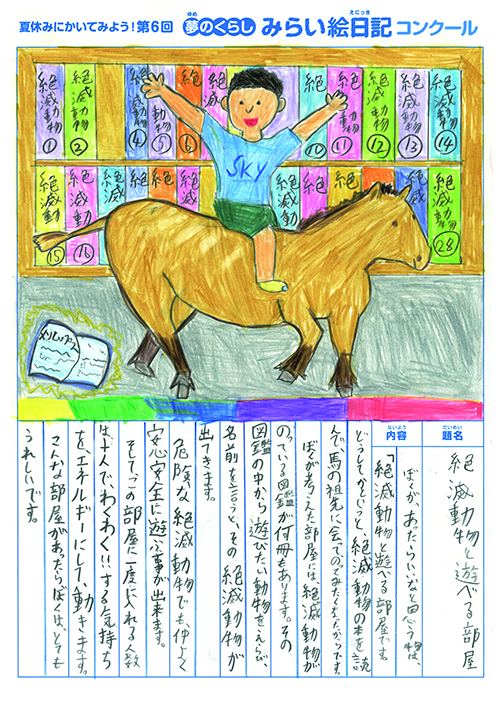 夏休みにかいてみよう!第6回 夢のくらし みらい絵日記コンクール
ゆめ
えにっき
絶滅動物①
絶滅動物②
絶滅④
動物⑤
⑥
⑩
絶滅⑪
絶滅動物⑫
絶滅動物⑬
絶滅動物⑭
絶滅動⑮
絶滅動⑯
絶滅動
絶滅動物㉘
SKY
だいめい
題名
絶滅動物と遊べる部屋
ないよう
内容
ぼくが、あったらいいなと思う物は、
「絶滅動物と遊べる部屋」です。
どうしてかというと、絶滅動物の本を読
んで、馬の祖先に会ってのってみたくなったからです。
ぼくが考えた部屋には、絶滅動物が
のっている図鑑が何冊もあります。その
図鑑の中から遊びたい動物をえらび、
名前を言うと、その絶滅動物が
出てきます。
危険な絶滅動物でも、仲よく
安心安全に遊ぶ事が出来ます。
そして、この部屋に一度に入れる人数
は、十人で、わくわく!!する気持ち
を、エネルギーにして、動きます。
こんな部屋があったら、ぼくは、とても
うれしいです。